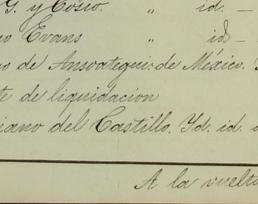 G. y Cosio. " id. —
Evans " id —
de Ansoategui: de México.
de liquidacion
ano del Castillo. Id. id.
A la vuelta